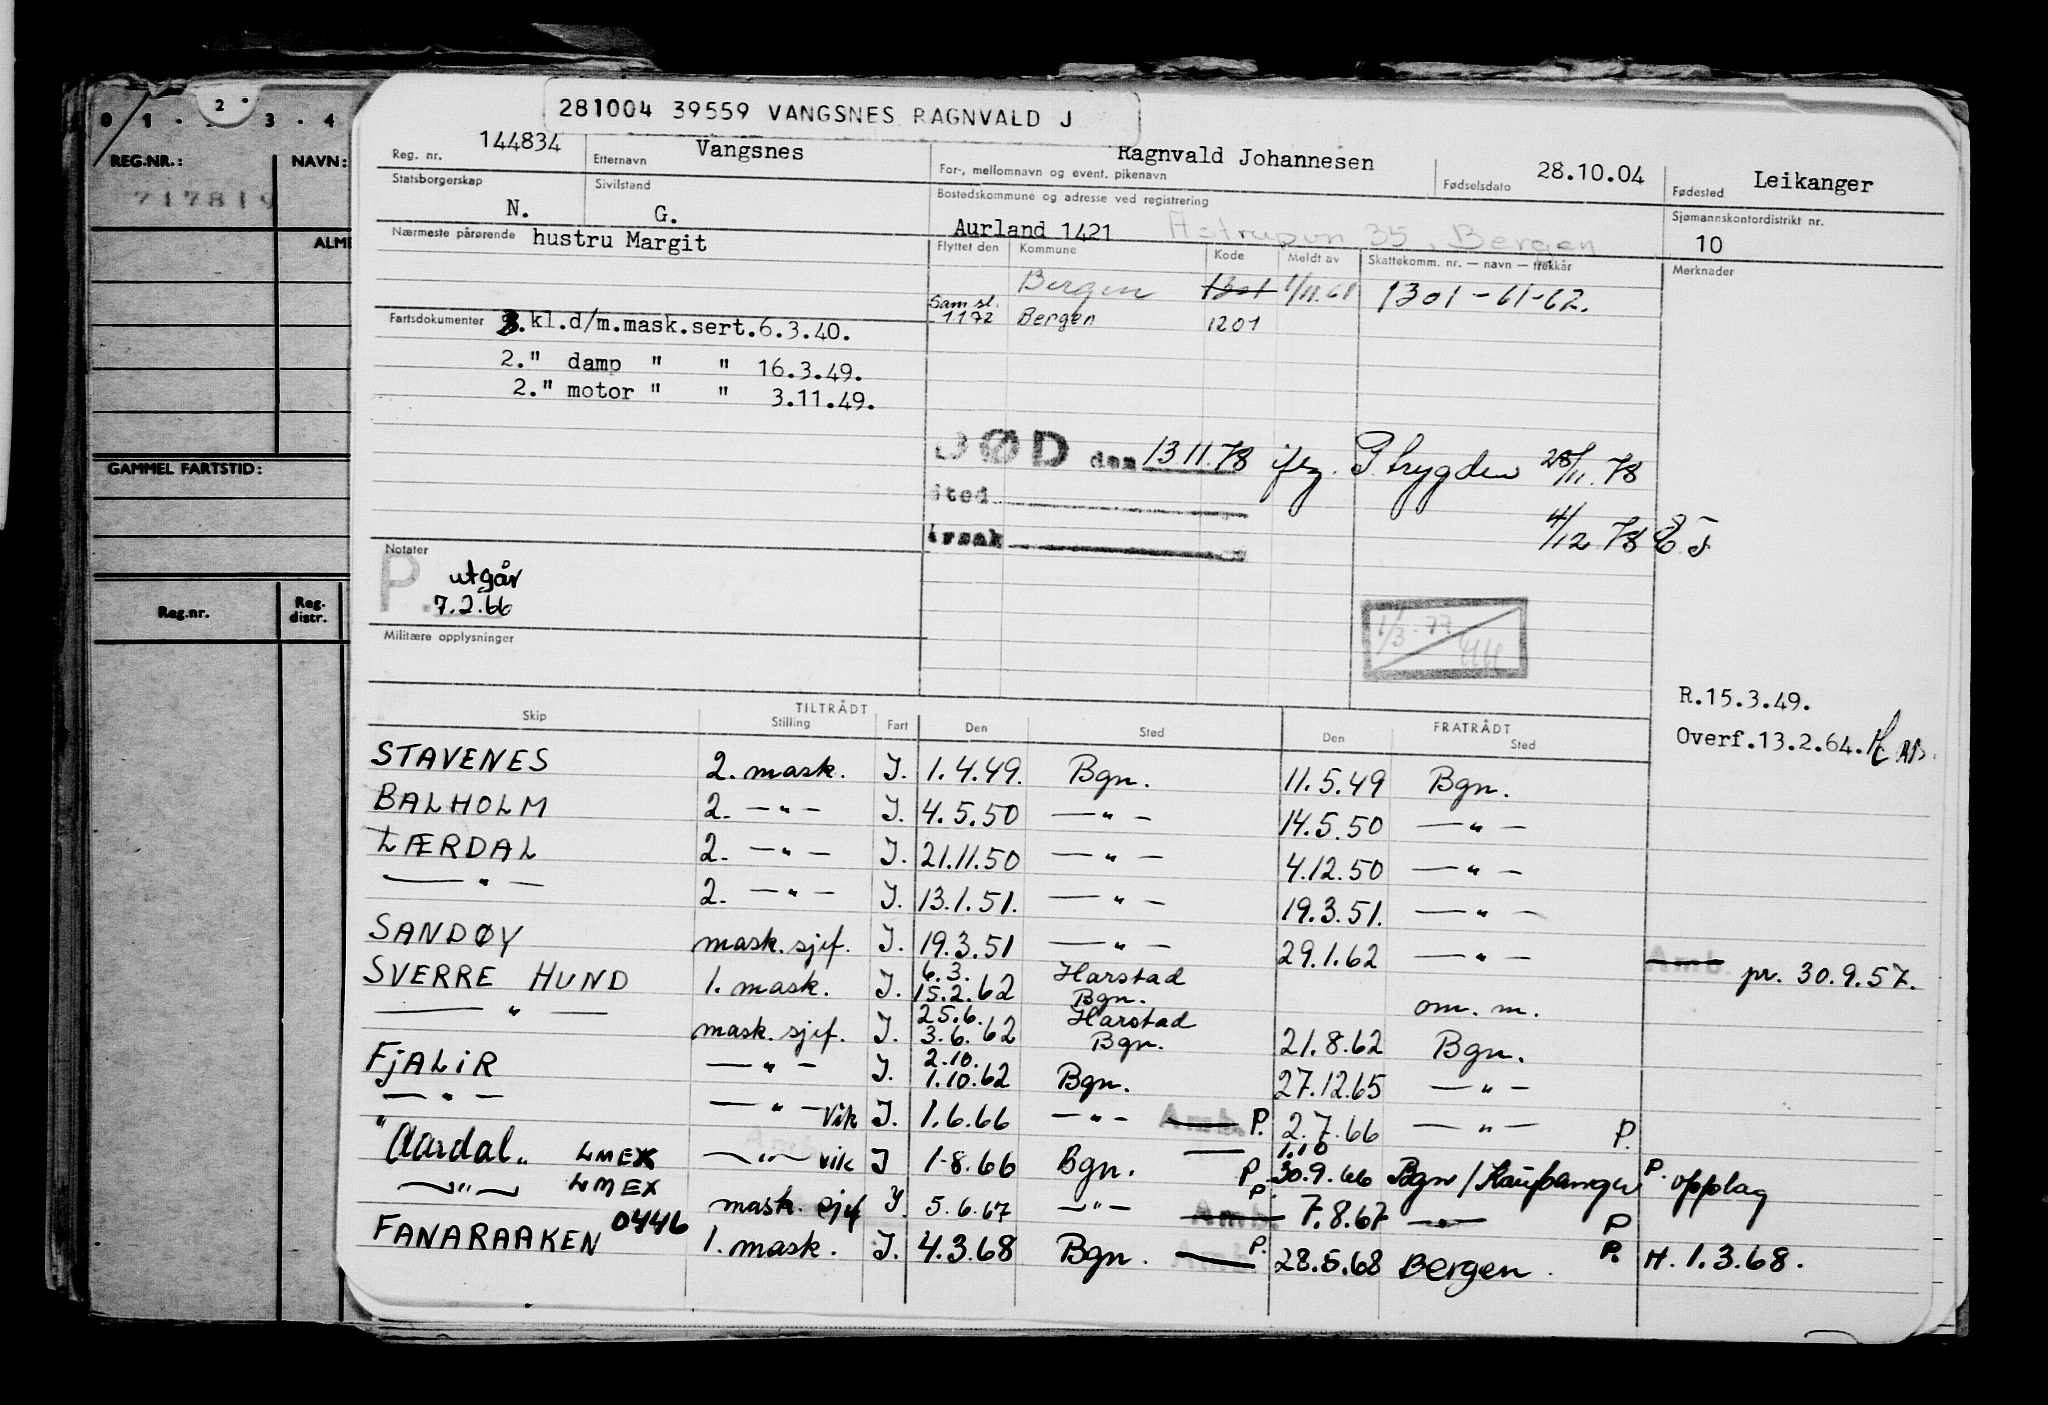 0 1 . 2 . 3 . 4
REG.NR.: NAVN:
717819
ALME
GAMMEL FARTSTID:
Reg.nr. Reg. distr.
281004 39559 VANGSNES RAGNVALD J
Reg. nr. 144834 Etternavn Vangsnes For-, mellomnavn og event. pikenavn Ragnvald Johannesen Fødselsdato 28.10.04 Fødested Leikanger
Statsborgerskap N. Sivilstand G. Bostedskommune og adresse ved registrering Aurland 1421 Astrupvn 35, Bergen Sjømannskontordistrikt nr. 10
Nærmeste pårørende hustru Margit Flyttet den Kommune Kode Meldt av Skattekomm. nr. — navn — trekkår Merknader
Bergen 1301 1/11.61 1301-61-62.
Sam sl. 1172 Bergen 1201
Fartsdokumenter 3.kl.d/m.mask.sert.6.3.40.
2." damp " " 16.3.49.
2." motor " " 3.11.49.
DØD den 13 11.78 ifg. P. trygden 28/11.78
Sted
Årsak 4/12 78
Notater
P. utgår
7.2.66
1/3.77
Militære opplysninger
R.15.3.49.
Overf.13.2.64.
TILTRÅDT FRATRÅDT
Skip Stilling Fart Den Sted Den Sted
STAVENES 2. mask. J. 1.4.49. Bgn. 11.5.49 Bgn.
BALHOLM 2. — " — J. 4.5.50 — " — 14.5.50 — " —
LÆRDAL 2. — " — J. 21.11.50 — " — 4.12.50 — " —
— " — 2. — " — J. 13.1.51. — " — 19.3.51. — " —
SANDØY mask. sjef. J. 19.3.51 — " — 29.1.62 — " — Amb. pr. 30.9.57.
SVERRE HUND 1. mask. J. 6.3. 15.2.62 Harstad Bgn. om. m.
— " — mask. sjef. J. 25.6. 3.6.62 Harstad Bgn. 21.8.62 Bgn.
FJALIR — " — J. 2.10. 1.10.62 Bgn. 27.12.65 — " —
— " — — " — vik J. 1.6.66 — " — Amb. P. 2.7.66 — " — P.
"Aardal" LMEX — " — vik J 1-8.66 Bgn. P. 1.10 30.9.66 Bgn/Kaupanger P. opplag
— " — LMEX mask. sjef J. 5.6.67 — " — Amb. P. 7.8.67 — " — P
FANARAAKEN 0446 1. mask. J. 4.3.68 Bgn. Amb. P. 28.5.68 Bergen. P. H. 1.3.68.